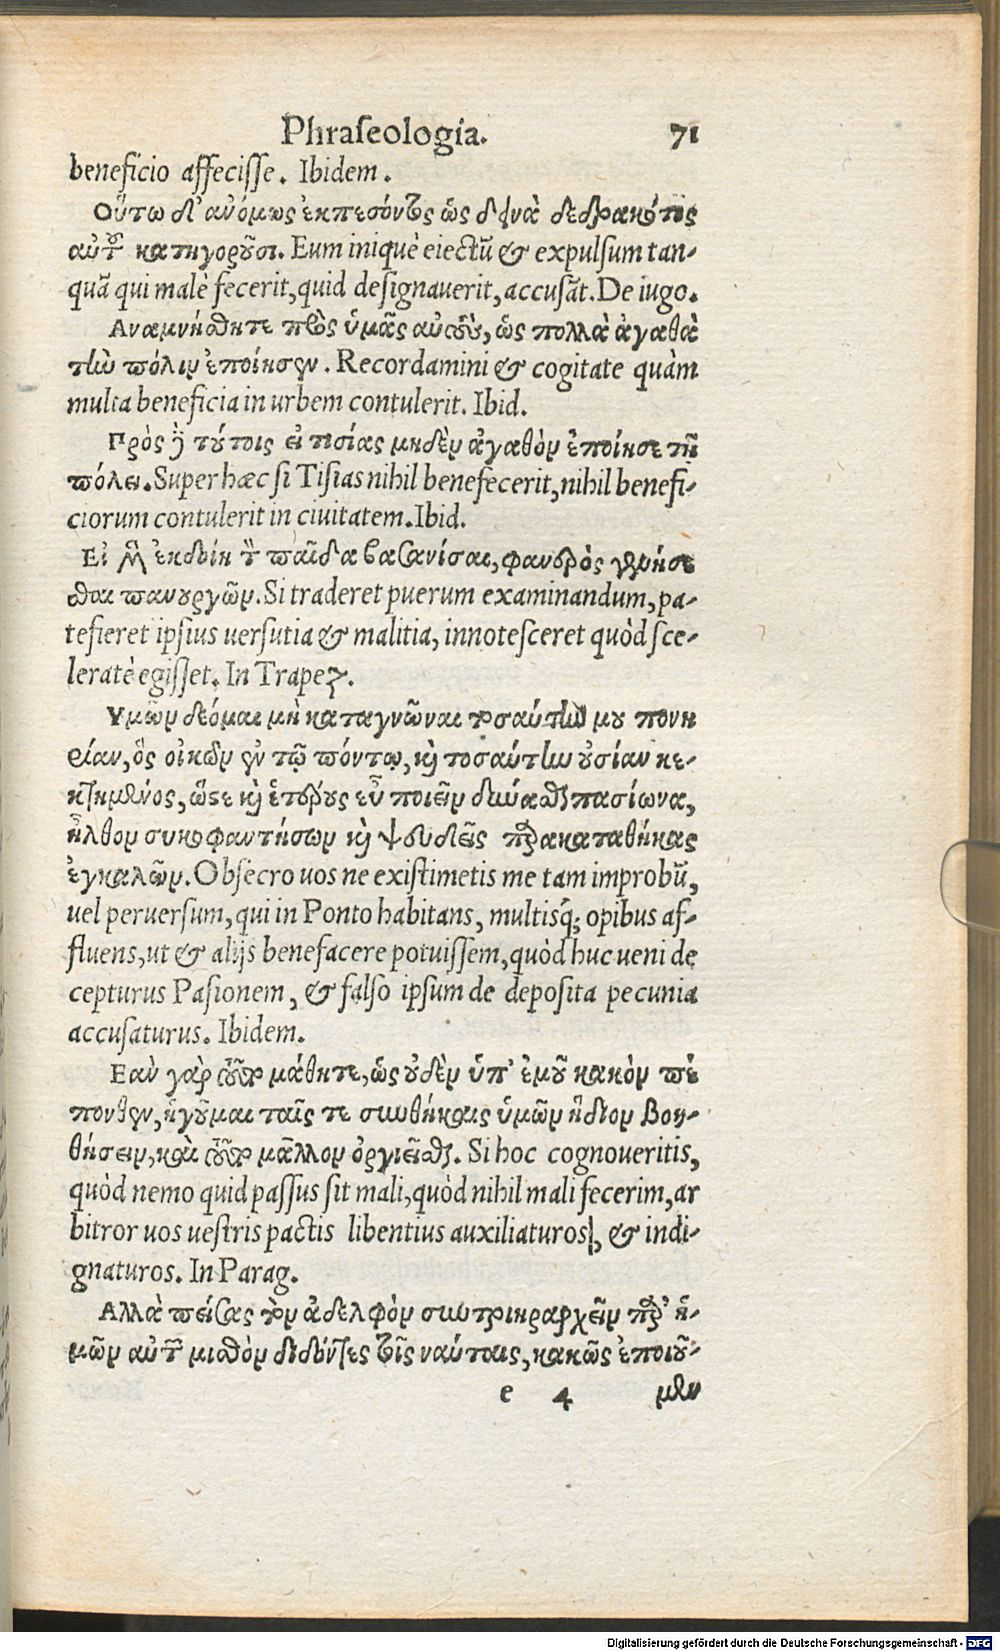 Phraseologia. 71
beneficio affecisse. Ibidem.
Οὕτω δ' ἀνόμως ἐκπεσόντος ὡς δεινὰ δεδρακότος
αὐτοῦ κατηγοροῦσι. Eum iniquè eiectū & expulsum tan-
quā qui malè fecerit, quid designauerit, accusāt. De iugo.
Αναμνήσθητε πρὸς ὑμᾶς αὐτοὺς, ὡς πολλὰ ἀγαθὰ
τὴν πόλιν ἐποίησεν. Recordamini & cogitate quàm
multa beneficia in urbem contulerit. Ibid.
Πρὸς ἢ τούτοις εἰ τισίας μηδὲν ἀγαθὸν ἐποίησε τῇ
πόλει. Super hæc si Tisias nihil benefecerit, nihil benefi-
ciorum contulerit in ciuitatem. Ibid.
Εἰ μὲν ἐκδοίη τὸν παῖδα βασανίσαι, φανερὸς γενήσε
σθαι πανουργῶν. Si traderet puerum examinandum, pa-
tefieret ipsius uersutia & malitia, innotesceret quòd sce-
leratè egisset. In Trapez.
Υμῶν δέομαι μὴ καταγνῶναι τοσαύτην μου πονη
ρίαν, ὃς οἰκῶν ἐν τῷ πόντῳ, καὶ τοσαύτην οὐσίαν κε-
κτημένος, ὥστε καὶ ἑτέρους εὖ ποιεῖν δύνασθαι πασίωνα,
ἦλθον συκοφαντήσων καὶ ψευδεῖς παρακαταθήκας
ἐγκαλῶν. Obsecro uos ne existimetis me tam improbū,
uel peruersum, qui in Ponto habitans, multisq́; opibus af-
fluens, ut & alijs benefacere potuissem, quòd huc ueni de
cepturus Pasionem, & falso ipsum de deposita pecunia
accusaturus. Ibidem.
Εαν γὰρ τοῦτο μάθητε, ὡς οὐδὲν ὑπ' ἐμοῦ κακὸν πέ
πονθεν, ἡγοῦμαι ταῖς τε συνθήκαις ὑμῶν ἥδιον βοη-
θήσειν, καὶ τοῦτον μᾶλλον ὀργιεῖσθαι. Si hoc cognoueritis,
quòd nemo quid passus sit mali, quòd nihil mali fecerim, ar
bitror uos uestris pactis libentius auxiliaturos, & indi-
gnaturos. In Parag.
Αλλὰ πείσας τὸν ἀδελφὸν συντριηραρχεῖν παρ' ἡ-
μῶν αὐτῶν μισθὸν διδόντες τοῖς ναύταις, κακῶς ἐποιοῦ-
e 4 μεν
Digitalisierung gefördert durch die Deutsche Forschungsgemeinschaft - DFG